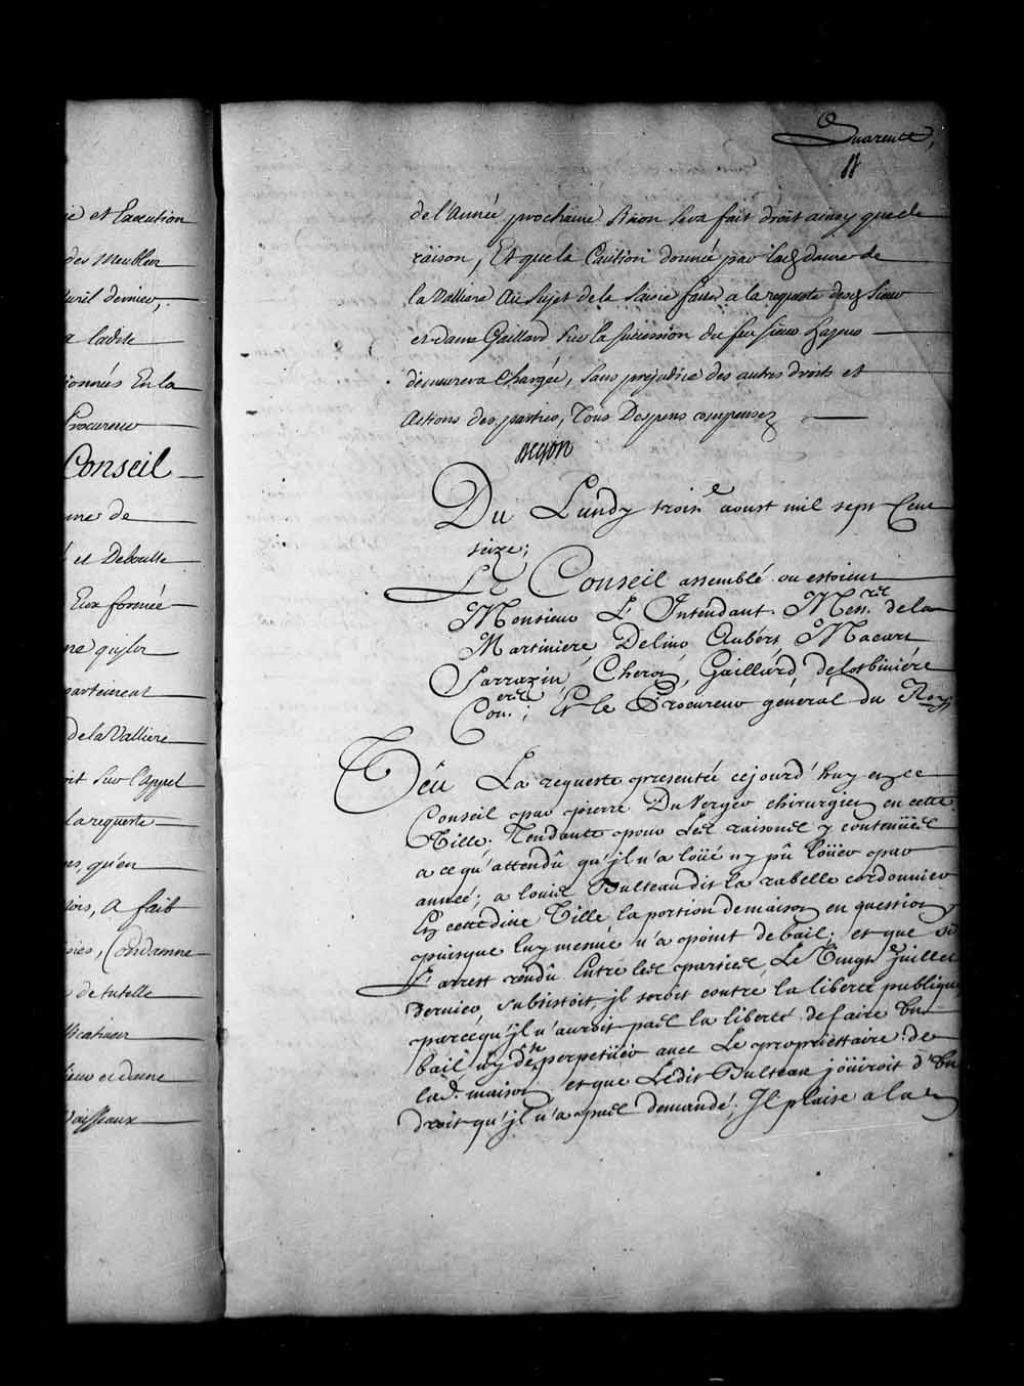 ie et Execution
des Meubles
avril dernier,
a ladite
ionnés En la
Procureur
Conseil
me de
et Deboutte
Eux formée
ne quj lor
partement
de la Valliere
oit Sur l'appel
la requeste
es, qu'en
ois, a fait
ies, Condamne
de tutelle
ieur et dame
Vaisseaux
Quarente,
de l'année prochaine Sinon sera fait droit ainsy que de
raison, Et que la Caution donnée par lad dame de
la Valliere Au Sujet de la Saisie faite a la requeste desd Sieur
et dame Gaillard Sur la succession du feu Sieur hazeur
demeurera Chargée, Sans prejudice des autres droits et
Actions des parties, Tous Despens compensez
Begon
Du Lundy trois.e aoust mil sept Cent
seize;
Le Conseil assemblé ou estoient
Monsieur L'Intendant Mes.rs dela
Martiniere Delino Aubert Macart
Sarrazin, Cheron, Gaillard, delotbiniére
Con.ers; Et le Procureur général du Roy
Veu La requeste presentée cejourd'huy en ce
Conseil par pierre Du Vergev chirurgien en cette
Ville. Tendante pour Les raisons y contenües
a ce qu'attendû qu'jl n'a loüé ny pû loüer par
année; a louis Bulteau dit la rabelle cordonnier
En cette dite Ville la portion de maison en question
puisque luy mesme n'a point de bail; et que si
L'arrest rendû Entre les parties, Le Vingt Juillet
dernier, subsistoit, jl seroit contre la liberté publique
parcequ'jl n'auroit pas la liberté de faire Un
bail ny perpetüer avec Le propriettaire de
lad. maison, et que Ledit Bulteau joüiroit d'Un
droit qu'jl n'a pas demandé; Jl plaise a la